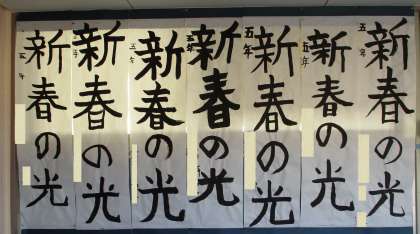 五年 新春の光
五年 新春の光
五年 新春の光
五年 新春の光
五年 新春の光
五年 新春の光
五年 新春の光